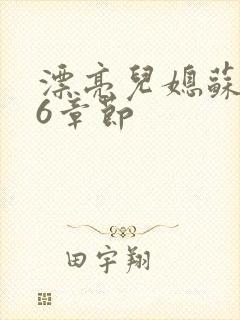 漂亮兒媳蘇
6章節
田宇翔